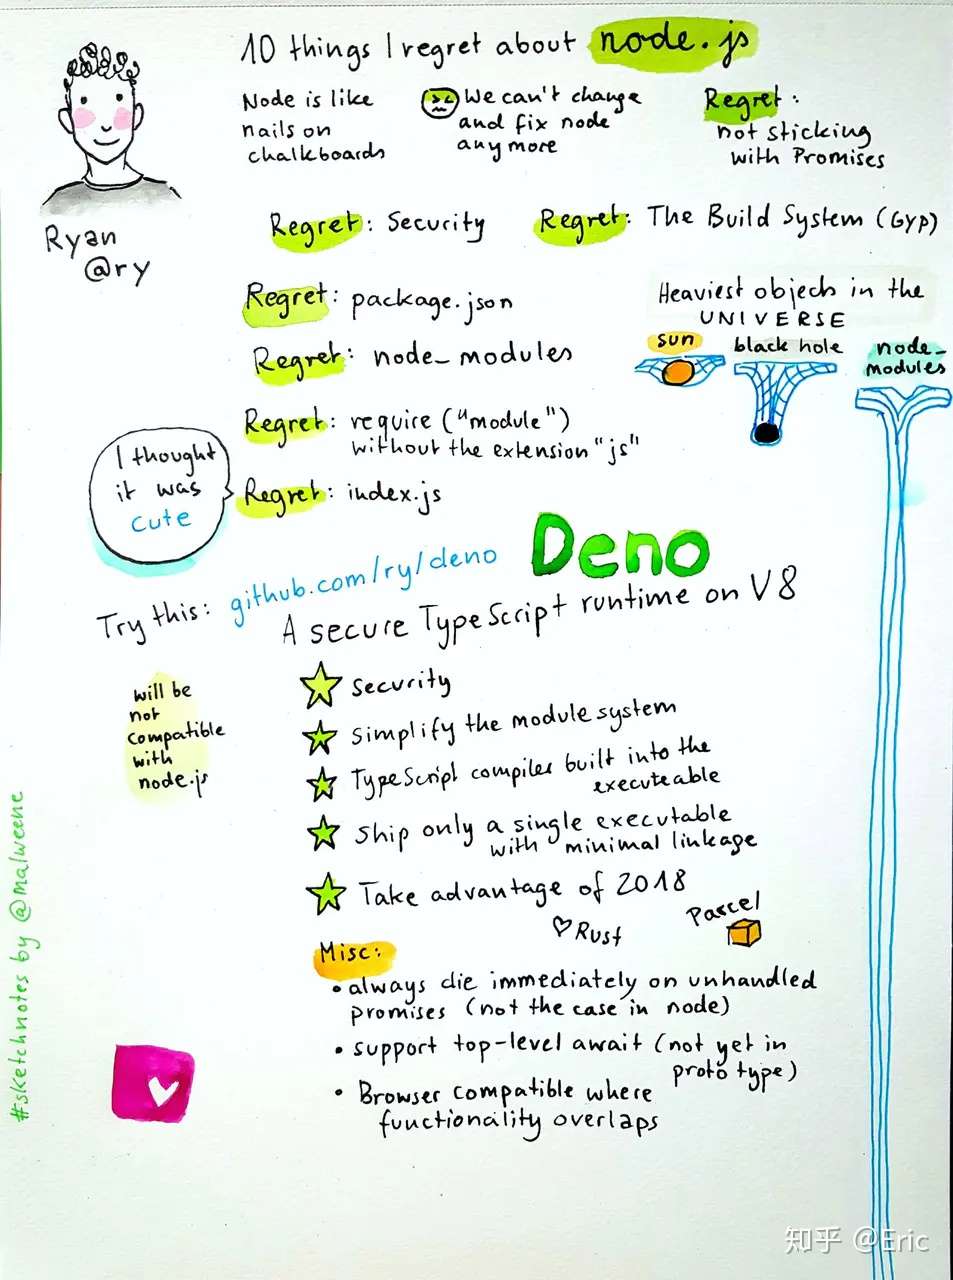 10 things I regret about node.js
Node is like
nails on
chalkboards
We can't change
and fix node
any more
Regret:
not sticking
with Promises
Ryan
@ry
Regret: Security
Regret: The Build System (Gyp)
Regret: package.json
Regret: node_modules
Regret: require ("module")
without the extension "js"
Regret: index.js
I thought
it was
cute
Heaviest objects in the
UNIVERSE
sun
black hole
node_
modules
Try this: github.com/ry/deno
Deno
A secure TypeScript runtime on V8
will be
not
compatible
with
node.js
Security
Simplify the module system
TypeScript compiler built into the
executeable
Ship only a single executable
with minimal linkage
Take advantage of 2018
Rust
Parcel
Misc:
• always die immediately on unhandled
promises (not the case in node)
• support top-level await (not yet in
proto type)
• Browser compatible where
functionality overlaps
#sketchnotes by @malweene
知乎 @Eric